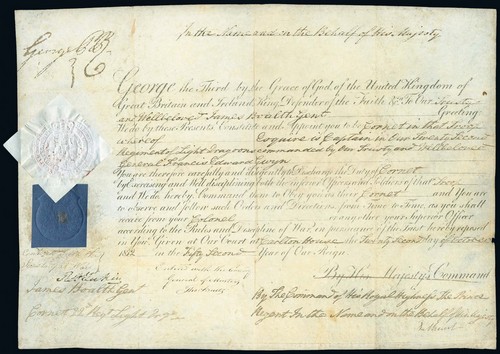 In the Name and on the Behalf of His Majesty
George P R
George the Third by the Grace of God, of the United Kingdom of
Great Britain and Ireland, King, Defender of the Faith &c To Our Trusty
and Wellbeloved James Boulth Gent Greeting
We do by these Presents Constitute and Appoint you to be Cornet in that Troop
whereof Esquire is Captain in Our
Regiment of Light Dragoons commanded by Our Trusty and Wellbeloved
General Francis Edward Gwyn
You are therefore carefully and diligently to Discharge the Duty of Cornet
by Exercising and Well disciplining both the inferior Officers and Soldiers of that Troop
and We do hereby Command them to Obey you as their Cornet and You are
to observe and follow such Orders and Directions from Time to Time, as you shall
receive from your Colonel or any other your Superior Officer
according to the Rules and Discipline of War, in pursuance of the Trust hereby reposed
in You. Given at Our Court at Carlton House the Twenty Second day of October
1812 in the Fifty Second Year of Our Reign
Entered with the
General of
By His Majesty's Command
By The Command of His Royal Highness The Prince
Regent In the Name and on the Behalf of His Majesty
James Boulth Gent
Cornet Regt Light Drag
Bathurst